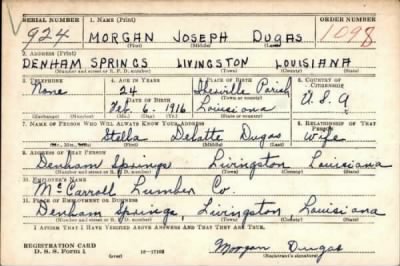 SERIAL NUMBER 1. NAME (Print) ORDER NUMBER
924 MORGAN JOSEPH DUGAS 1098
(First) (Middle) (Last)
2. ADDRESS (Print)
DENHAM SPRINGS LIVINGSTON LOUISIANA
(Number and street or R. F. D. number) (Town) (County) (State)
3. TELEPHONE 4. AGE IN YEARS 5. PLACE OF BIRTH 6. COUNTRY OF CITIZENSHIP
None 24 Iberville Parish
DATE OF BIRTH (Town or county)
Feb. 6, 1916 Louisiana U.S.A
(Exchange) (Number) (Mo.) (Day) (Yr.) (State or country)
7. NAME OF PERSON WHO WILL ALWAYS KNOW YOUR ADDRESS 8. RELATIONSHIP OF THAT PERSON
Stella Dugas Wife
(Mr., Mrs., Miss) (First) (Middle) (Last)
9. ADDRESS OF THAT PERSON
Denham Springs Livingston Louisiana
(Number and street or R. F. D. number) (Town) (County) (State)
10. EMPLOYER'S NAME
McCarroll Lumber Co.
11. PLACE OF EMPLOYMENT OR BUSINESS
Denham Springs, Livingston Louisiana
(Number and street or R. F. D. number) (Town) (County) (State)
I AFFIRM THAT I HAVE VERIFIED ABOVE ANSWERS AND THAT THEY ARE TRUE.
REGISTRATION CARD
D. S. S. Form 1 (over) Morgan Dugas
(Registrant's signature)